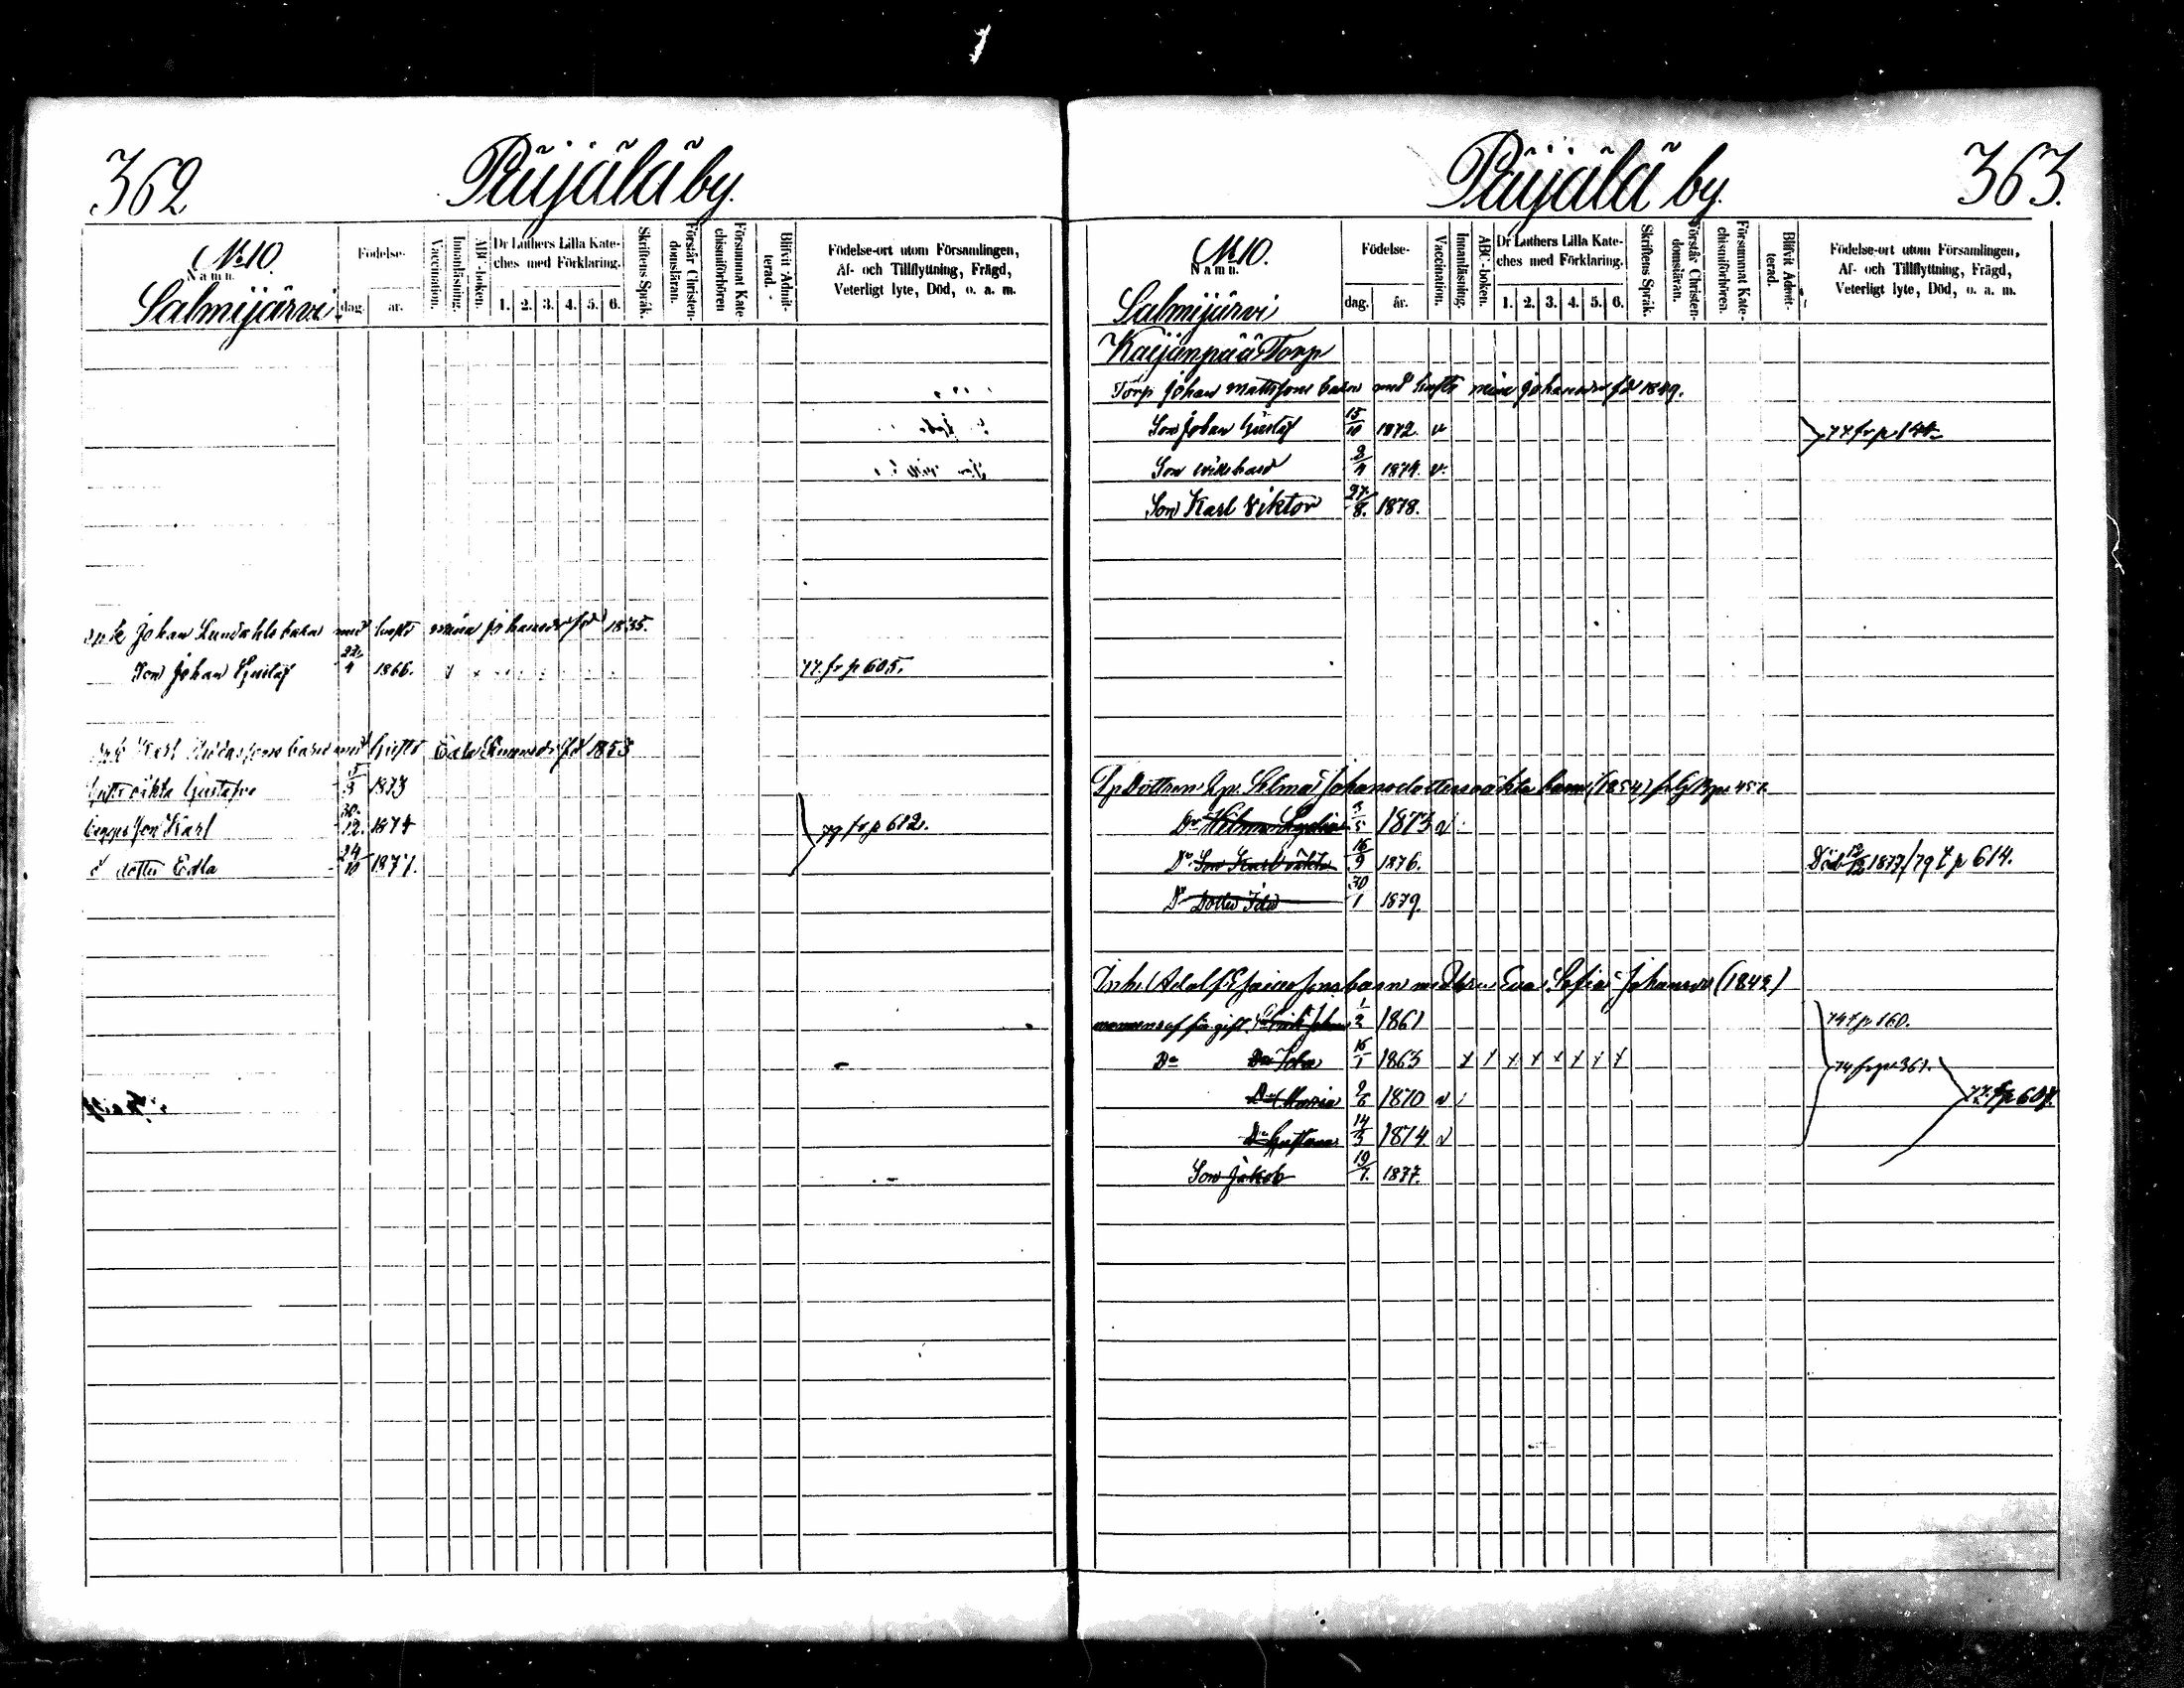 362
Päijälä by.
No 10.
Namn.
Salmijärvi
Födelse-
dag.
år.
Vaccination.
Innanläsning.
ABC-boken.
Dr Luthers Lilla Kate-
ches med Förklaring.
1. 2. 3. 4. 5. 6.
Skriftens Språk.
Förstår Christen-
domsläran.
Försummat Kate-
chismiförhören
Blifvit Admit-
terad.
Födelse-ort utom Församlingen,
Af- och Tillflyttning, Frägd,
Veterligt lyte, Död, o. a. m.
Johan Lundahls barn med hustr mina johansdr föd 1835.
Son Johan Gustaf 22/4 1866. 77. fr p 605.
Karl barn med hustr Eda föd 1853
Gustafva 5/3 1873
Son Karl 30/12 1874 79 fr p 612.
dotter Edla 24/10 1877.
363.
Päijälä by.
No 10.
Namn.
Salmijärvi
Födelse-
dag.
år.
Vaccination.
Innanläsning.
ABC-boken.
Dr Luthers Lilla Kate-
ches med Förklaring.
1. 2. 3. 4. 5. 6.
Skriftens Språk.
Förstår Christen-
domsläran.
Försummat Kate-
chismiförhören.
Blifvit Admit-
terad.
Födelse-ort utom Församlingen,
Af- och Tillflyttning, Frägd,
Veterligt lyte, Död, o. a. m.
Kaijanpää Torp
Torp Johan Mattssons barn med hustr mina Johansdr fd 1849.
Son Johan Gustaf 15/10 1872. v 77 fr p 144
Son Wilehard 2/4 1874. v.
Son Karl Viktor 27/8. 1878.
Dottren Selma Johansdotters oäkta barn (1854)
Dr Hilma 3/5 1873 v
Do Son Karl oäkta 16/9 1876. Död 12/12 1877/79 t p 614.
Do Dotter Ida 30/1 1879.
Inh. Adolf barn med hru Eva Sofia Johansdr (1842)
1/2 1861 74 t p 160.
Do Dr Ida 16/1 1863 x x x x x x x x 74 fr p 361.
Dr Maria 2/6 1870 v 77. fr p 607.
Dr Gustava 14/3 1874. v
Son Jakob 19/7. 1877.